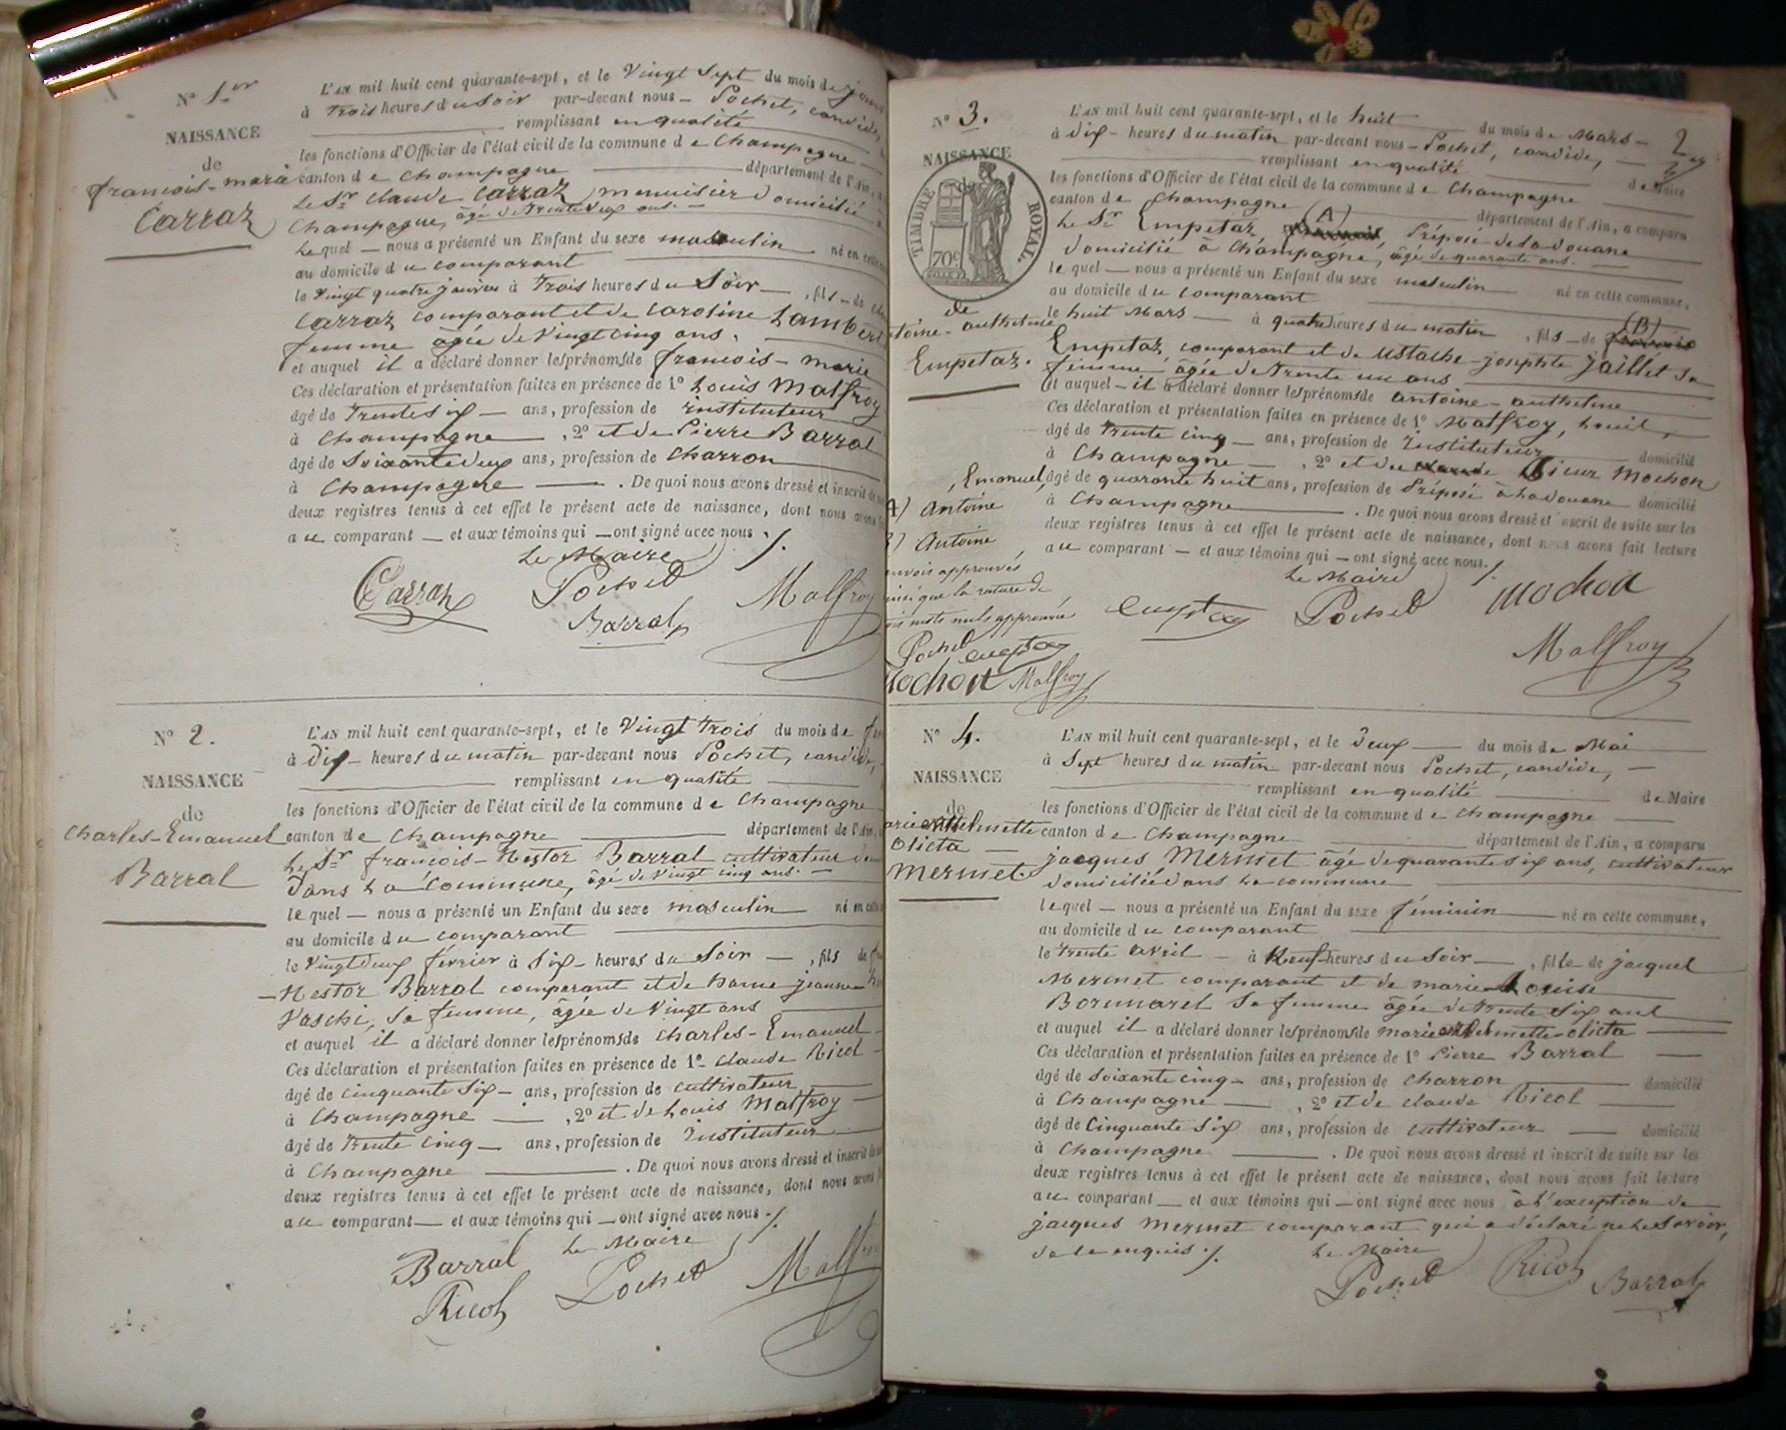 N° 1.er
NAISSANCE
de
françois-marie
Carraz
L'AN mil huit cent quarante-sept, et le Vingt Sept du mois de
à trois heures du soir par-devant nous Pochet, candide,
remplissant en qualité
les fonctions d'Officier de l'état civil de la commune d e Champagne
canton d e Champagne département de l'Ain,
Le Sr claude Carraz, menuisier domicilié
Champagne, âgé de trente deux ans.
Le quel nous a présenté un Enfant du sexe masculin né en cette
au domicile d u comparant
le Vingt quatre janvier à trois heures du Soir, fils de
Carraz comparant et de Caroline Lambert
femme âgée de vingt cinq ans.
et auquel il a déclaré donner les prénoms de françois-marie
Ces déclaration et présentation faites en présence de 1° Louis Malfroy
âgé de trente six ans, profession de instituteur
à Champagne, 2° et de Pierre Barral
âgé de Soixante deux ans, profession de charron
à Champagne. De quoi nous avons dressé et inscrit de
deux registres tenus à cet effet le présent acte de naissance, dont nous avons
a u comparant et aux témoins qui ont signé avec nous ./.
Le Maire
Carraz Pochet Malfroy
Barral
N° 2.
NAISSANCE
de
Charles-Emanuel
Barral
L'AN mil huit cent quarante-sept, et le Vingt trois du mois de
à Dix heures du matin par-devant nous Pochet, candide,
remplissant en qualité
les fonctions d'Officier de l'état civil de la commune d e Champagne
canton d e Champagne département de l'Ain,
Le Sr françois-Nestor Barral cultivateur
dans La Commune, âgé de vingt cinq ans.
le quel nous a présenté un Enfant du sexe masculin né en cette
au domicile d u comparant
le vingt deux février à six heures du Soir, fils de
Nestor Barral comparant et de Dame jeanne
Vaschi, Sa femme, âgée de vingt ans
et auquel il a déclaré donner les prénoms de Charles-Emanuel
Ces déclaration et présentation faites en présence de 1° claude Ricol
âgé de cinquante six ans, profession de cultivateur
à Champagne, 2° et de Louis Malfroy
âgé de trente cinq ans, profession de Instituteur
à Champagne. De quoi nous avons dressé et inscrit de
deux registres tenus à cet effet le présent acte de naissance, dont nous avons
a u comparant et aux témoins qui ont signé avec nous ./.
Le Maire
Barral Pochet Malfroy
Ricol
2
N° 3.
NAISSANCE
TIMBRE ROYAL.
70c
de
antheline
Empetaz.
L'AN mil huit cent quarante-sept, et le huit du mois de Mars
à dix heures du matin par-devant nous Pochet, candide,
remplissant en qualité de Maire
les fonctions d'Officier de l'état civil de la commune d e Champagne
canton d e Champagne département de l'Ain, a comparu
Le Sr Empetaz (A) Préposé de la douane
domicilié à Champagne, âgé de quarante ans.
le quel nous a présenté un Enfant du sexe masculin né en cette commune,
au domicile d u comparant
le huit Mars à quatre heures du matin, fils de (B)
Empetaz comparant et de Ustache-josephte Jaillet sa
femme âgée de trente un ans
et auquel il a déclaré donner les prénoms de antoine-antheline
Ces déclaration et présentation faites en présence de 1° Malfroy, Louis,
âgé de trente cinq ans, profession de Instituteur domicilié
à Champagne, 2° et du Sieur Mochon
, Emanuel, âgé de quarante huit ans, profession de Préposé à La douane domicilié
à Champagne. De quoi nous avons dressé et inscrit de suite sur les
deux registres tenus à cet effet le présent acte de naissance, dont nous avons fait lecture
a u comparant et aux témoins qui ont signé avec nous ./.
A) Antoine
B) Antoine
renvois approuvés
ainsi que la rature de
mots nuls approuvée
Pochet Empetaz
Mochon Malfroy
Le Maire
Empetaz Pochet Mochon
Malfroy
N° 4.
NAISSANCE
de
Marie anthelmette
olicta
Mermet.
L'AN mil huit cent quarante-sept, et le Deux du mois de Mai
à Sept heures du matin par-devant nous Pochet, candide,
remplissant en qualité de Maire
les fonctions d'Officier de l'état civil de la commune d e Champagne
canton d e Champagne département de l'Ain, a comparu
jacques Mermet âgé de quarante six ans, cultivateur
domicilié dans La commune
le quel nous a présenté un Enfant du sexe féminin né en cette commune,
au domicile d u comparant
le trente avril à Neuf heures du Soir, fille de jacques
Mermet comparant et de marie Louise
Bornnarel Sa femme âgée de trente Six ans
et auquel il a déclaré donner les prénoms de marie anthelmette-olicta
Ces déclaration et présentation faites en présence de 1° Pierre Barral
âgé de Soixante cinq ans, profession de charron domicilié
à Champagne, 2° et de claude Ricol
âgé de Cinquante Six ans, profession de cultivateur domicilié
à Champagne. De quoi nous avons dressé et inscrit de suite sur les
deux registres tenus à cet effet le présent acte de naissance, dont nous avons fait lecture
a u comparant et aux témoins qui ont signé avec nous à L'exception de
jacques Mermet comparant qui a déclaré ne Le Savoir,
de ce enquis ./.
Le Maire
Pochet Ricol Barral